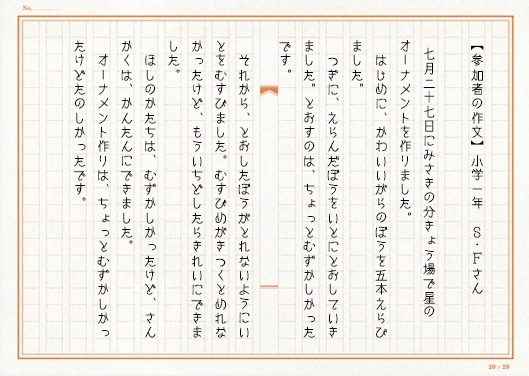 No.
【参加者の作文】 小学一年　S・Fさん
七月二十七日にみさきの分きょう場で星の
オーナメントを作りました。
はじめに、かわいいがらのぼうを五本えらび
ました。
つぎに、えらんだぼうをいとにとおしていき
ました。とおすのは、ちょっとむずかしかった
です。
それから、とおしたぼうがとれないようにい
とをむすびました。むすびめがきつくとめれな
かったけど、もういちどしたらきれいにできま
した。
ほしのかたちは、むずかしかったけど、さん
かくは、かんたんにできました。
オーナメント作りは、ちょっとむずかしかっ
たけどたのしかったです。
20×20